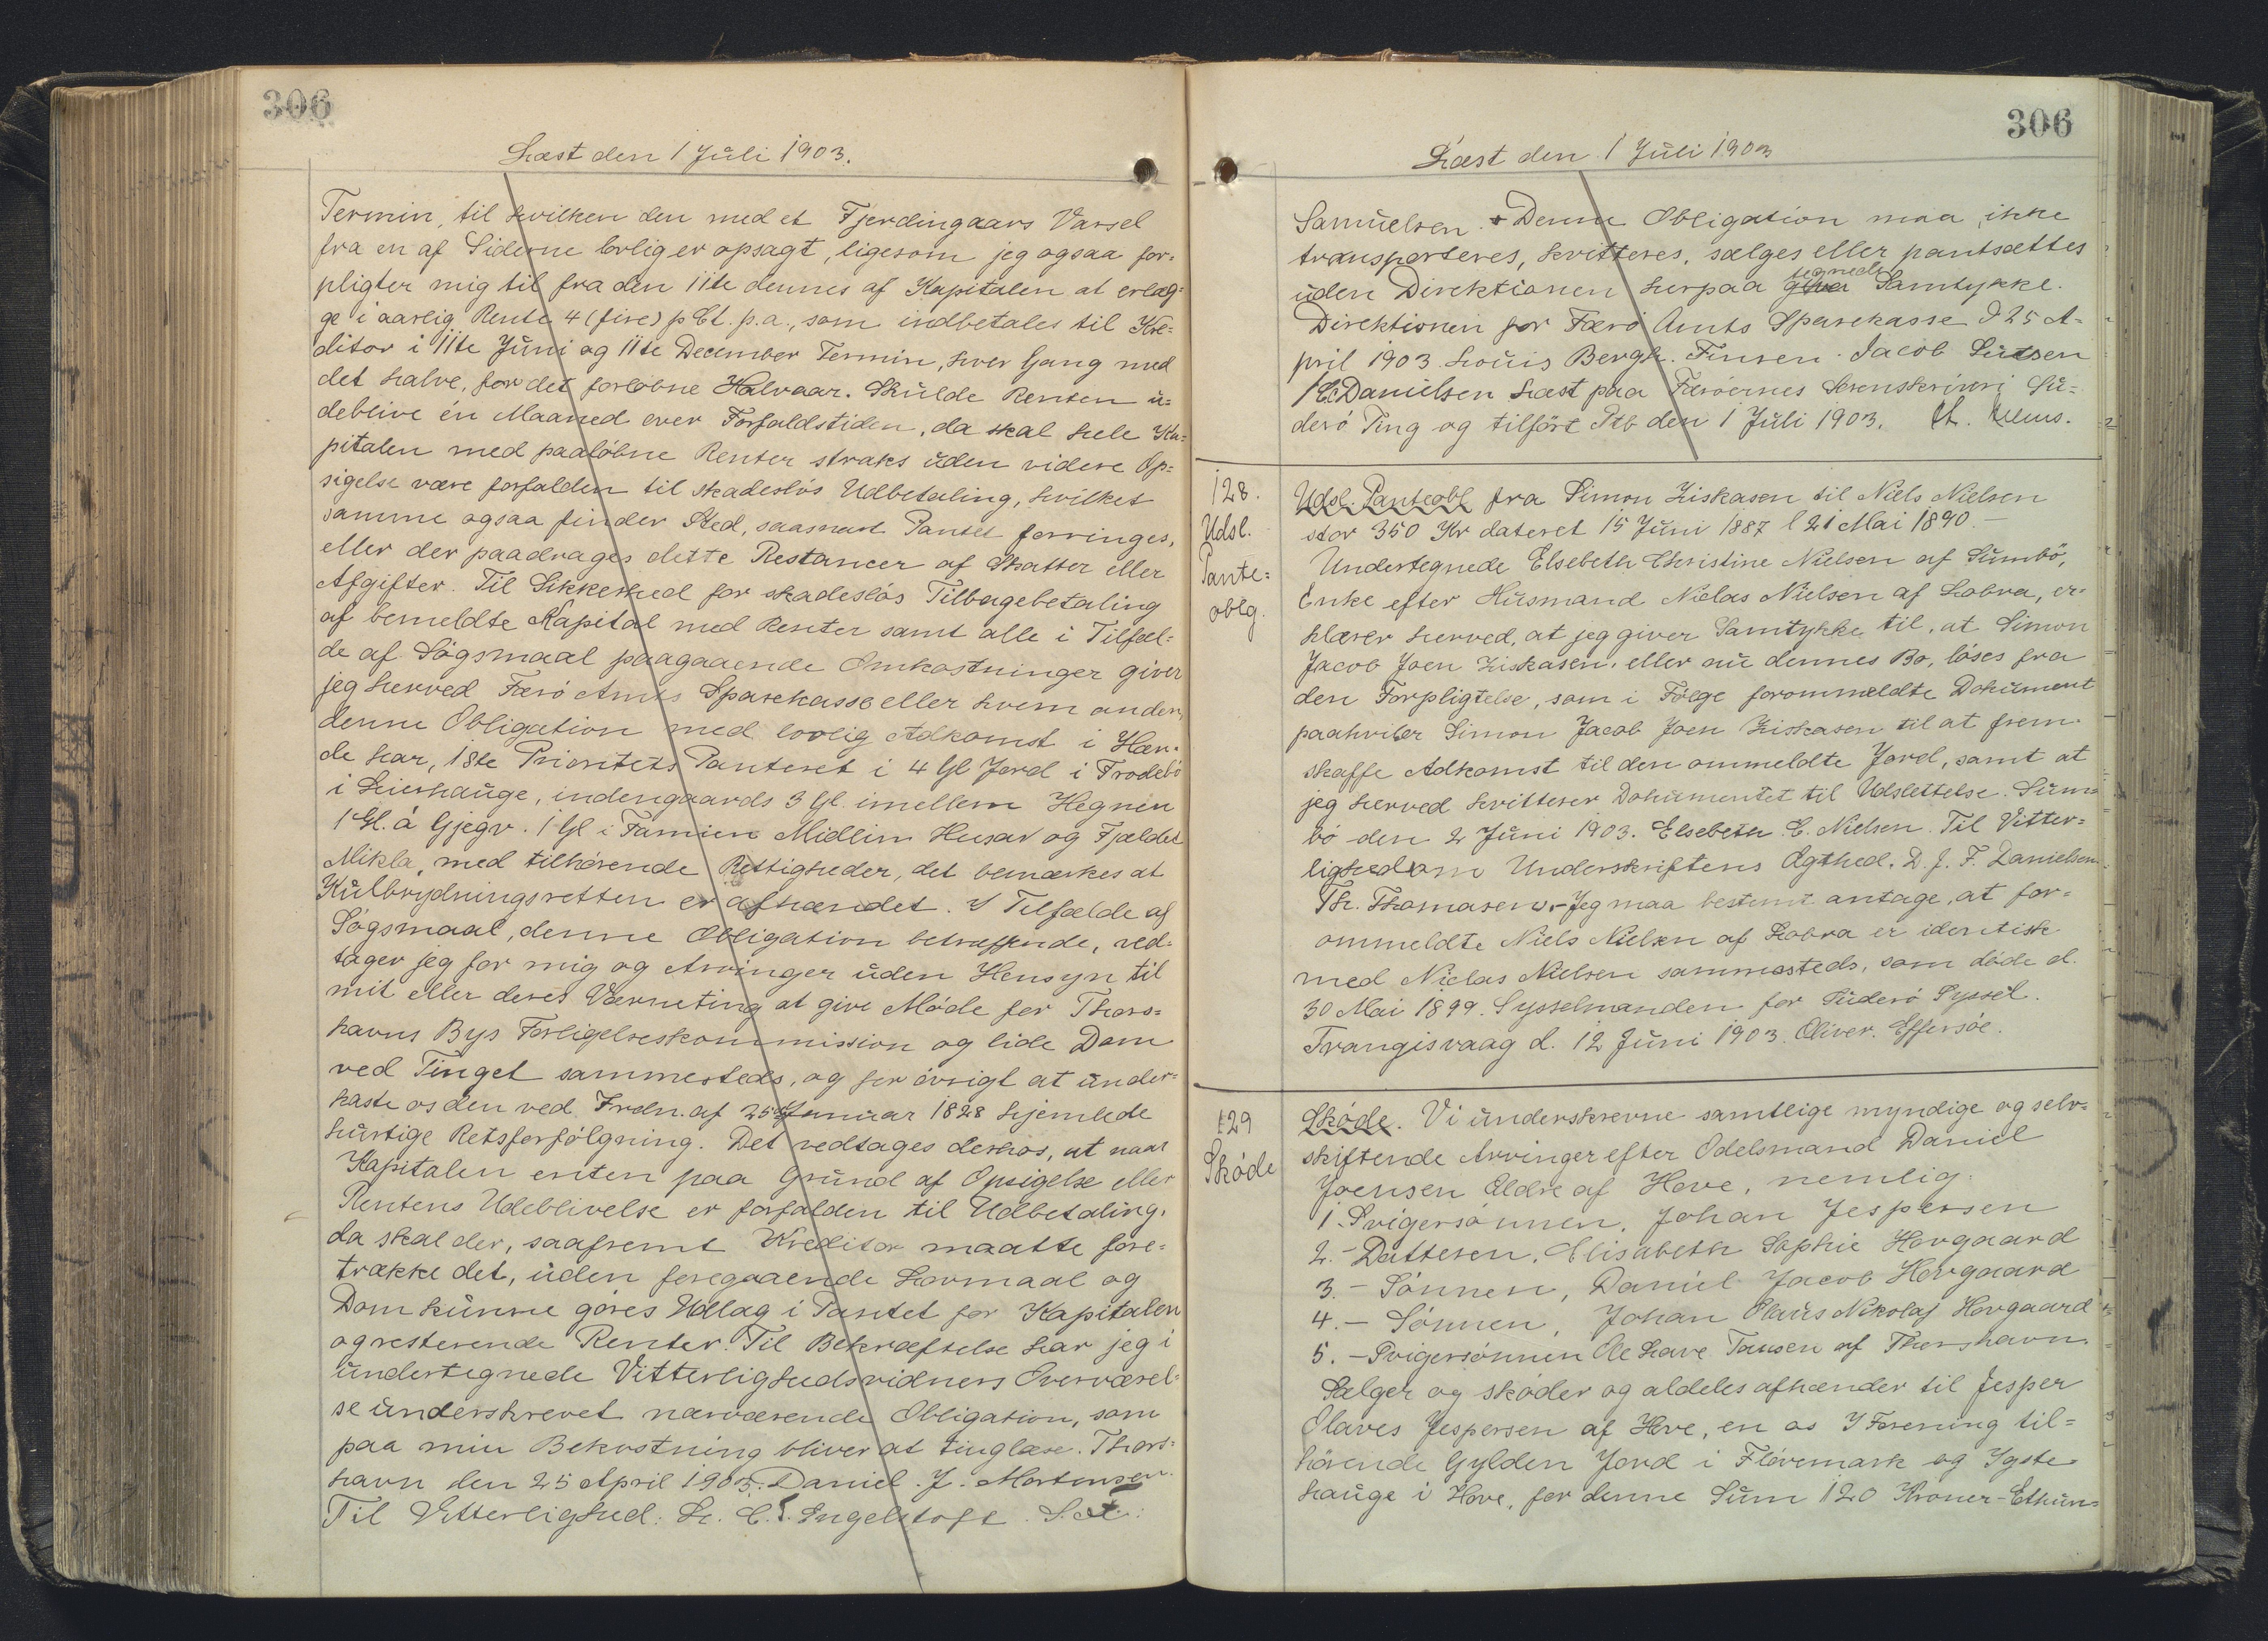 306
Læst den 1 Juli 1903.
Termin, til hvilken den med et Fjerdingaars Varsel
fra en af Siderne lovlig er opsagt, ligesom jeg ogsaa for-
pligter mig til fra den 11te dennes af Kapitalen at erlæg-
ge i aarlig Rente 4 (fire) p Ct. p.a., som indbetales til Kre-
ditor i 11te Juni og 11te December Termin, hver Gang med
det halve, for det forløbne Halvaar. Skulde Renten u-
deblive én Maaned over Forfaldstiden, da skal hele Ka-
pitalen med paaløbne Renter straks uden videre Op-
sigelse være forfalden til skadesløs Udbetaling, hvilket
samme ogsaa finder Sted, saasnart Pantet forringes,
eller der paadrages dette Restancer af Skatter eller
Afgifter. Til Sikkerhed for skadesløs Tilbagebetaling
af bemeldte Kapital med Renter samt alle i Tilfæl-
de af Søgsmaal paagaaende Omkostninger giver
jeg herved Færø Amts Sparekasse eller hvem anden,
denne Obligation med lovlig Adkomst i Hæn-
de har, 1ste Prioritets Panteret i 4 Gl Jord i Frodebø
i Leirhauge, indengaards 3 Gl. imellem Hegnin
1 Gl. á Gjegv. 1 Gl i Famien Midlim Husar og Fjeldet
Mikla, med tilhørende Rettigheder, det bemærkes at
Kulbrydningsretten er afhændet. I Tilfælde af
Søgsmaal, denne Obligation betræffende, ved-
tager jeg for mig og Arvinger uden Hensyn til
mit eller deres Værneting at give Møde for Thors-
havns Bys Forligelseskommission og lide Dom
ved Tinget sammesteds, og for øvrigt at under-
kaste os den ved Frdn. af 25 Januar 1828 hjemlede
hurtige Retsforfølgning. Det vedtages derhos, at naar
Kapitalen enten paa Grund af Opsigelse eller
Rentens Udeblivelse er forfalden til Udbetaling,
da skal der, saafremt Kreditor maatte fore-
trække det, uden foregaaende Lovmaal og
Dom kunne gøres Udlæg i Pantet for Kapitalen
og resterende Renter. Til Bekræftelse har jeg i
undertegnede Vitterlighedsvidners Overværel-
se underskrevet nærværende Obligation, som
paa min Bekostning bliver at tinglæse. Thors-
havn den 25 April 1903. Daniel. J. Mortensen
Til Vitterlighed: L. C. Engelstoft. S. A.
306
Læst den 1 Juli 1903
Samuelsen. Denne Obligation maa ikke
transporteres, kvitteres, sælges eller pantsættes
uden Direktionen herpaa tegnede Samtykke.
Direktionen for Færø Amts Sparekasse d 25 A-
pril 1903 Louis Bergh. Finsen. Jacob Lützen
/ E. Danielsen Læst paa Færøernes Sorenskriveri Su-
derø Ting og tilført Ptb den 1 Juli 1903.
128.
Udsl.
Pante-
oblg.
Udsl. Panteobl fra Simon Ziskasen til Niels Nielsen
stor 350 Kr dateret 15 Juni 1887 l 21 Mai 1890.-
Undertegnede Elsebeth Christine Nielsen af Sumbø,
Enke efter Husmand Niclas Nielsen af Lobra, er-
klærer herved, at jeg giver Samtykke til, at Simon
Jacob Joen Ziskasen, eller nu dennes Bo, løses fra
den Forpligtelse, som i Følge forommeldte Dokument
paahviler Simon Jacob Joen Ziskasen til at frem-
skaffe Adkomst til den ommeldte Jord, samt at
jeg herved kvitterer Dokumentet til Udslettelse. Sum-
bø den 2 Juni 1903. Elsebeth C. Nielsen. Til Vitter-
lighed om Underskriftens Ægthed. D. J. F. Danielsen
Th. Thomasen.- Jeg maa bestemt antage, at for-
ommeldte Niels Nielsen af Lobra er identisk
med Niclas Nielsen sammesteds, som døde d.
30 Mai 1899. Sysselmanden for Suderø Syssel.
Trangisvaag d. 12 Juni 1903. Oliver. Effersøe.
129
Skøde
Skøde. Vi underskrevne samtlige myndige og selv-
skiftende Arvinger efter Odelsmand Daniel
Joensen Ældre af Hove, nemlig.
1. Svigersønnen, Johan Jespersen
2.- Datteren, Elisabeth Sophie Hovgaard
3.- Sønnen, Daniel Jacob Hovgaard
4.- Sønnen, Johan Olaus Nikolaj Hovgaard
5.- Svigersønnen Ole Lave Tausen af Thorshavn.
Sælger og skøder og aldeles afhænder til Jesper
Olaves Jespersen af Hove, en os I Forening til-
hørende Gylden Jord i Fløremark og Sygste-
hauge i Hove, for denne Sum 120 Kroner - Ethun-